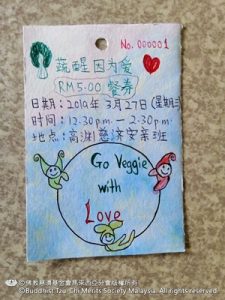 No. 000001
蔬醒因为爱
RM5.00 餐券
日期：2019年3月27日(星期三)
时间：12.30p.m. - 2.30p.m.
地点：高渊慈济安亲班
Go Veggie
with
Love
©佛教慈濟基金會馬來西亞分會版權所有
©Buddhist Tzu-Chi Merits Society Malaysia. All rights reserved.